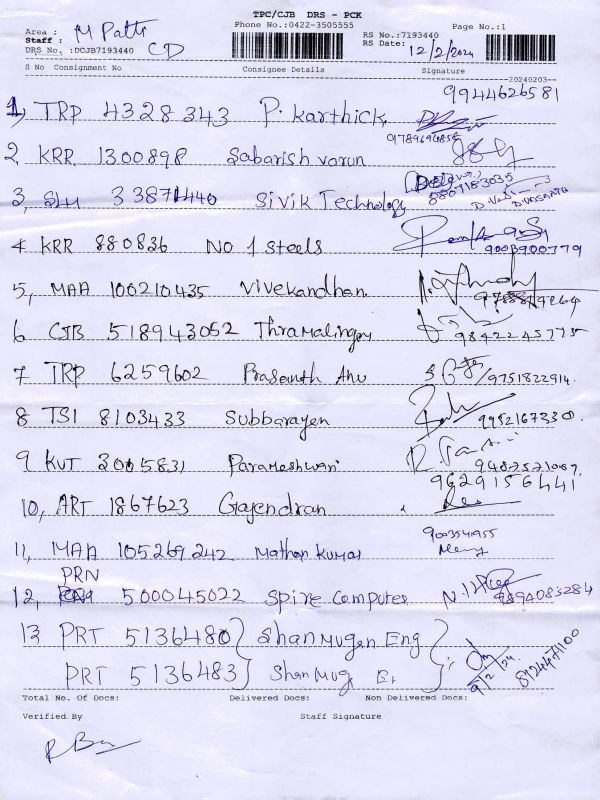 TPC/CJB DRS - PCK
Phone No.:0422-3505555 Page No.:1
Area : M Patti
Staff : CD
DRS No. :DCJB7193440
RS No.:7193440
RS Date: 12/2/2024
S No Consignment No Consignee Details Signature
20240203--
9944626581
1, TRP 4328343 P. Karthick
9789696858
2 KRR 1300898 Sabarish varun
3, SLM 33871440 Sivik Technology
8807153035
4 KRR 880836 No 1 Steels
9003900779
5, MAA 100210435 Vivekandhan
6 CJB 518943052 Thramalingam
9842245775
7 TRP 6259602 Prasanth Anu
9751822914
8 TSI 8103433 Subbarayen
9952167330
9 KUT 3005831 Parameshwari
9487571087
9629156441
10, ART 1867623 Gajendran
11, MAA 105269242 Mathan Kumar
900354955
PRN
12, 500045022 Spire Computer
9894083284
13 PRT 5136480 Shanmugen Eng
PRT 5136483 Shanmug E
9/2/24
8124471100
Total No. Of Docs: Delivered Docs: Non Delivered Docs:
Verified By Staff Signature